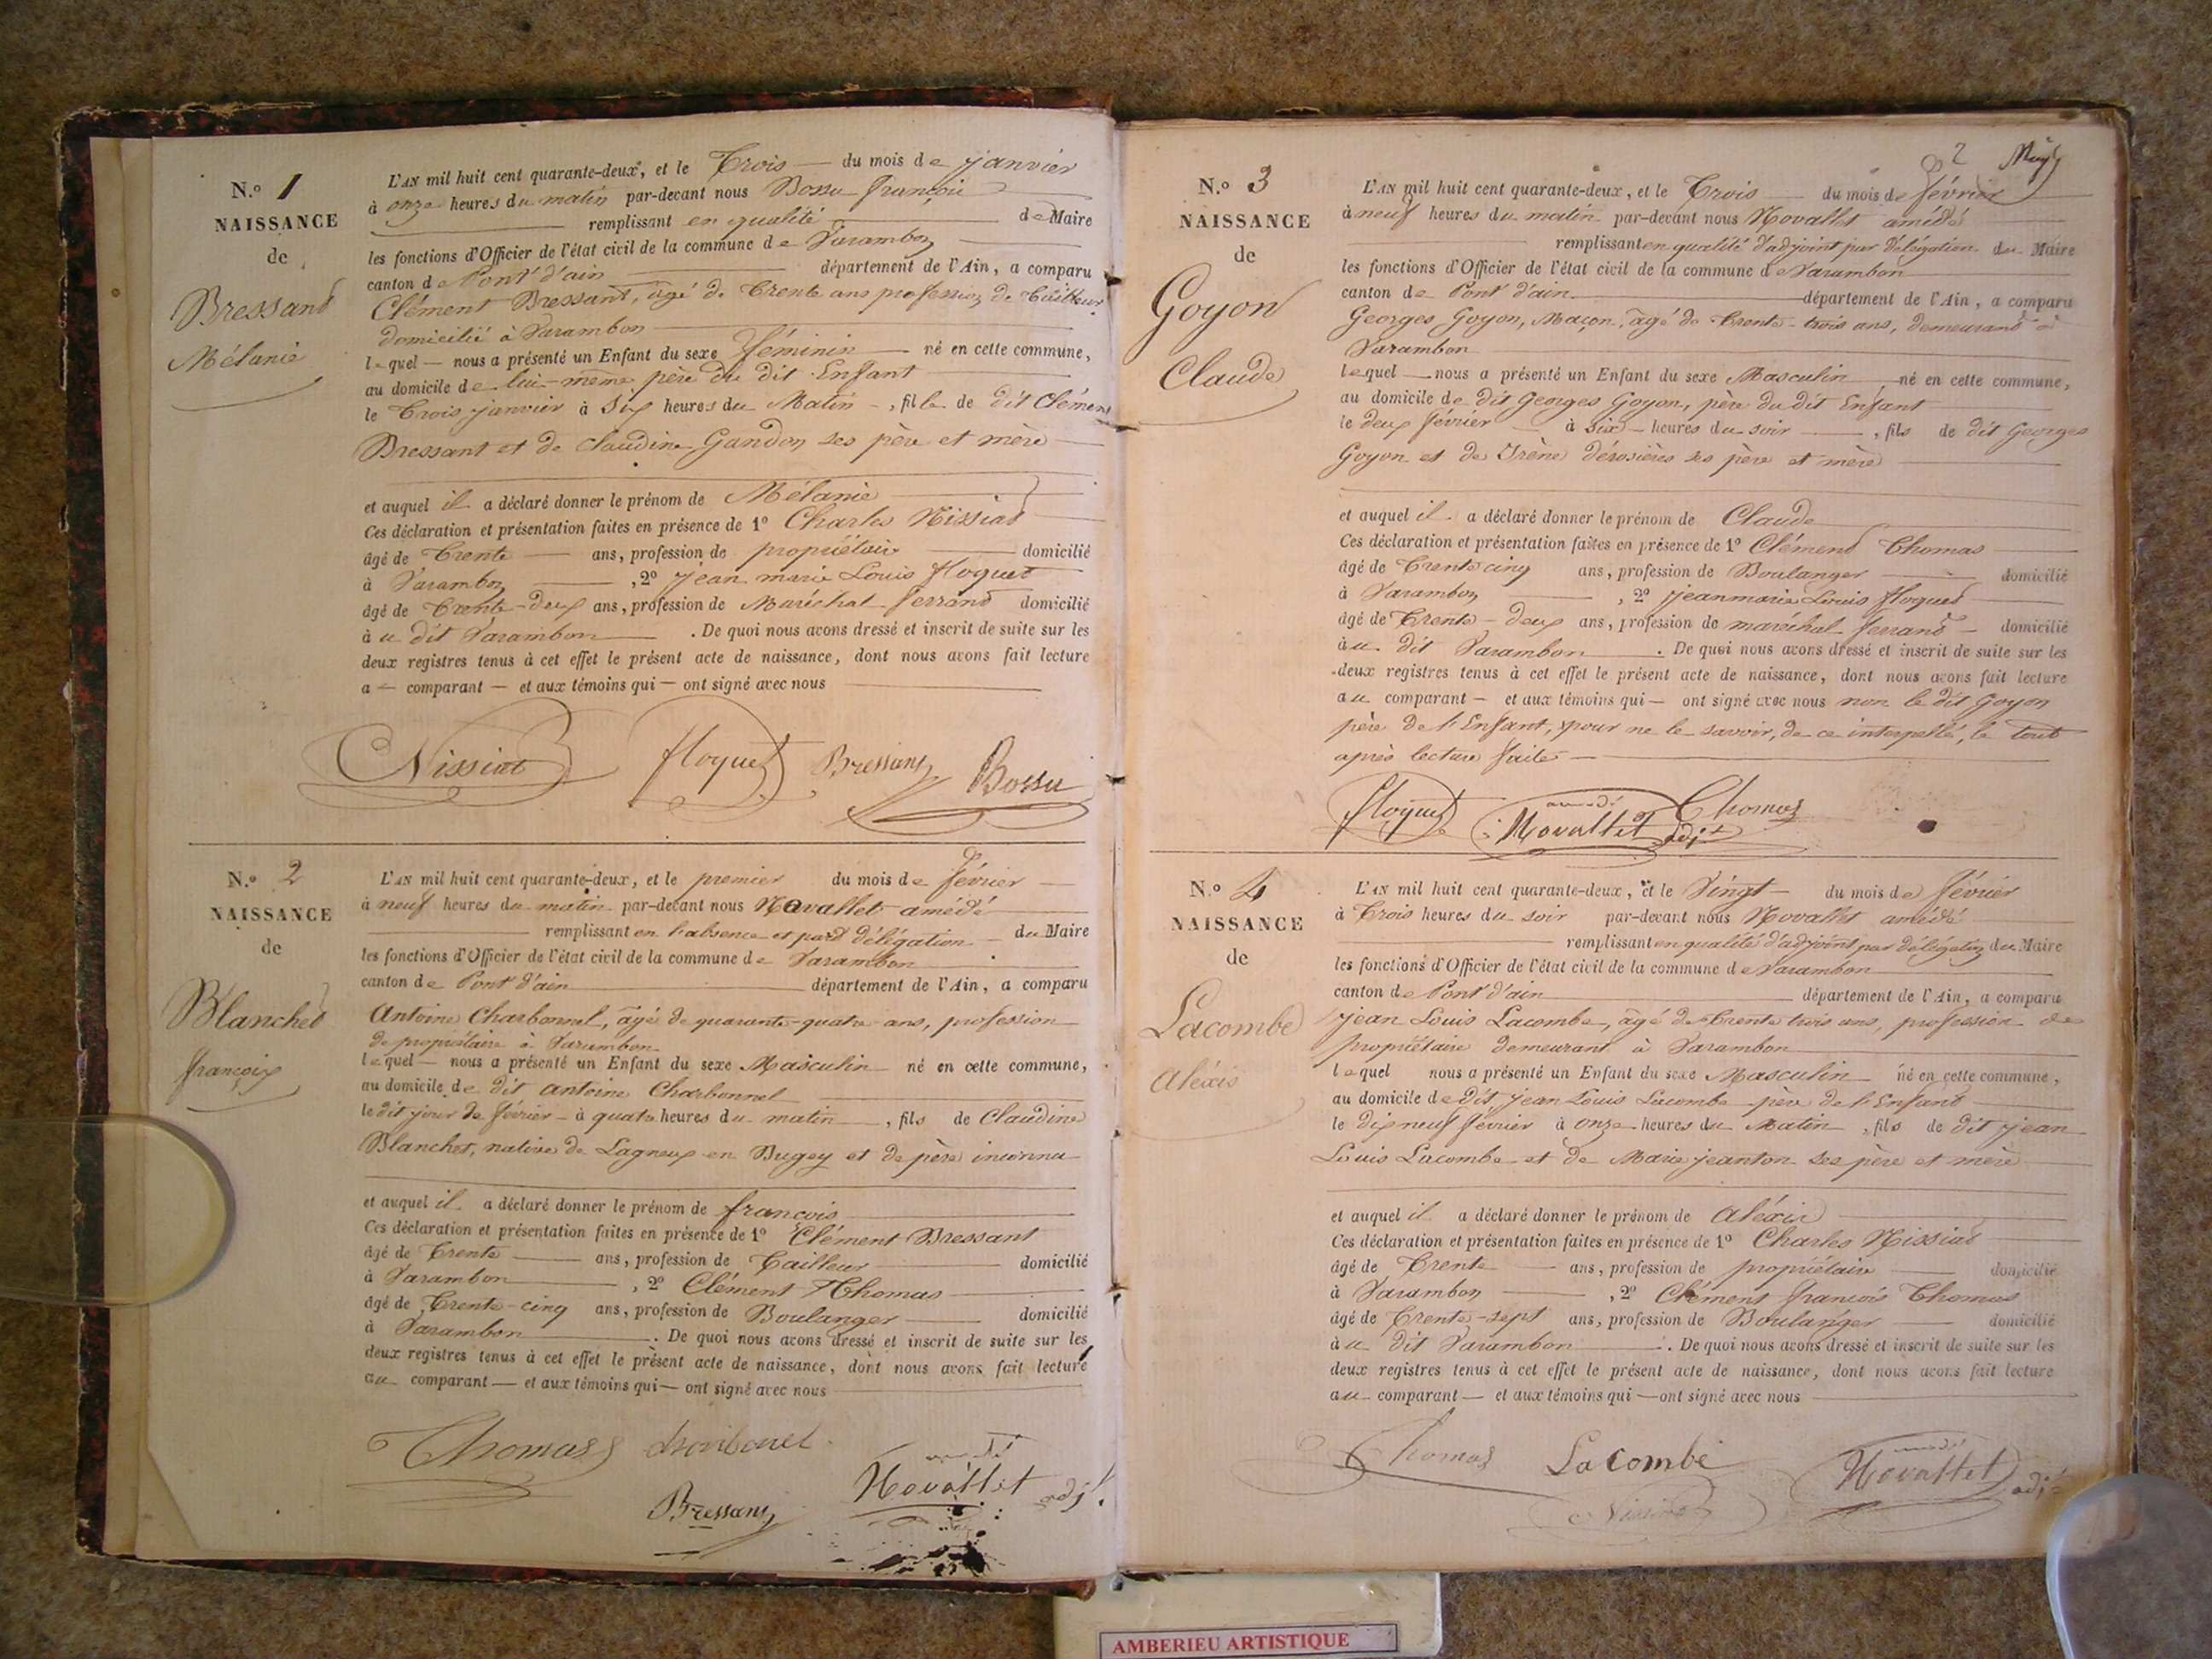 N.o 1
NAISSANCE
de
Bressand
Mélanie
L'AN mil huit cent quarante-deux, et le Trois du mois de janvier
à onze heures du matin par-devant nous Bossu françois
remplissant en qualité de Maire
les fonctions d'Officier de l'état civil de la commune de Varambon
canton de Pont d'ain département de l'Ain, a comparu
Clément Bressant, âgé de Trente ans profession de Tailleur
domicilié à Varambon
lequel nous a présenté un Enfant du sexe féminin né en cette commune,
au domicile de lui-même père du dit Enfant
le Trois janvier à Six heures du Matin, fille de dit Clément
Bressant et de Claudine Gandon ses père et mère
et auquel il a déclaré donner le prénom de Mélanie
Ces déclaration et présentation faites en présence de 1o Charles Nissiat
âgé de Trente ans, profession de propriétaire domicilié
à Varambon, 2o Jean marie Louis floquet
âgé de Trente-deux ans, profession de Maréchal ferrand domicilié
à u dit Varambon. De quoi nous avons dressé et inscrit de suite sur les
deux registres tenus à cet effet le présent acte de naissance, dont nous avons fait lecture
a comparant et aux témoins qui ont signé avec nous
Nissiat floquet Bressant Bossu
N.o 2
NAISSANCE
de
Blanchet
françois
L'AN mil huit cent quarante-deux, et le premier du mois de février
à neuf heures du matin par-devant nous Novallet amédé
remplissant en l'absence et part délégation du Maire
les fonctions d'Officier de l'état civil de la commune de Varambon
canton de Pont d'ain département de l'Ain, a comparu
Antoine Charbonnel, âgé de quarante-quatre ans, profession
de propriétaire à Varambon
lequel nous a présenté un Enfant du sexe Masculin né en cette commune,
au domicile de dit antoine Charbonnel
le dit jour de février à quatre heures du matin, fils de Claudine
Blanchet, native de Lagneux en Bugey et de père inconnu
et auquel il a déclaré donner le prénom de francois
Ces déclaration et présentation faites en présence de 1o Clément Bressant
âgé de Trente ans, profession de Tailleur domicilié
à Varambon, 2o Clément Thomas
âgé de Trente-cinq ans, profession de Boulanger domicilié
à Varambon. De quoi nous avons dressé et inscrit de suite sur les
deux registres tenus à cet effet le présent acte de naissance, dont nous avons fait lecture
au comparant et aux témoins qui ont signé avec nous
Thomas charbonel
Bressant amédé Novallet adjt.
2
N.o 3
NAISSANCE
de
Goyon
Claude
L'AN mil huit cent quarante-deux, et le Trois du mois de février
à neuf heures du matin par-devant nous Novallet amédé
remplissant en qualité d'adjoint par délégation du Maire
les fonctions d'Officier de l'état civil de la commune de Varambon
canton de Pont d'ain département de l'Ain, a comparu
Georges Goyon, Maçon, âgé de Trente-trois ans, demeurand à
Varambon
lequel nous a présenté un Enfant du sexe Masculin né en cette commune,
au domicile de dit Georges Goyon, père du dit Enfant
le deux février à six heures du soir, fils de dit Georges
Goyon et de Irène désosières ses père et mère
et auquel il a déclaré donner le prénom de Claude
Ces déclaration et présentation faites en présence de 1o Clémend Thomas
âgé de Trente cinq ans, profession de Boulanger domicilié
à Varambon, 2o Jeanmarie Louis floquet
âgé de Trente-deux ans, profession de maréchal ferrand domicilié
à u dit Varambon. De quoi nous avons dressé et inscrit de suite sur les
deux registres tenus à cet effet le présent acte de naissance, dont nous avons fait lecture
au comparant et aux témoins qui ont signé avec nous non le dit Goyon
père de l'Enfant, pour ne le savoir, de ce interpellé, le tout
après lecture faite
floquet amédé Novallet adjt Thomas
N.o 4
NAISSANCE
de
Lacombe
Aléxis
L'AN mil huit cent quarante-deux, et le Vingt du mois de février
à Trois heures du soir par-devant nous Novallet amédé
remplissant en qualité d'adjoint par délégation du Maire
les fonctions d'Officier de l'état civil de la commune de Varambon
canton de Pont d'ain département de l'Ain, a comparu
Jean Louis Lacombe, âgé de Trente trois ans, profession de
propriétaire demeurant à Varambon
lequel nous a présenté un Enfant du sexe Masculin né en cette commune,
au domicile de dit Jean Louis Lacombe père de l'Enfant
le dix neuf février à onze heures du Matin, fils de dit Jean
Louis Lacombe et de Marie Jeanton ses père et mère
et auquel il a déclaré donner le prénom de Aléxis
Ces déclaration et présentation faites en présence de 1o Charles Nissiat
âgé de Trente ans, profession de propriétaire domicilié
à Varambon, 2o Clément francois Thomas
âgé de Trente-sept ans, profession de Boulanger domicilié
à u dit Varambon. De quoi nous avons dressé et inscrit de suite sur les
deux registres tenus à cet effet le présent acte de naissance, dont nous avons fait lecture
au comparant et aux témoins qui ont signé avec nous
Thomas Lacombe amédé Novallet adjt
Nissiat
AMBERIEU ARTISTIQUE